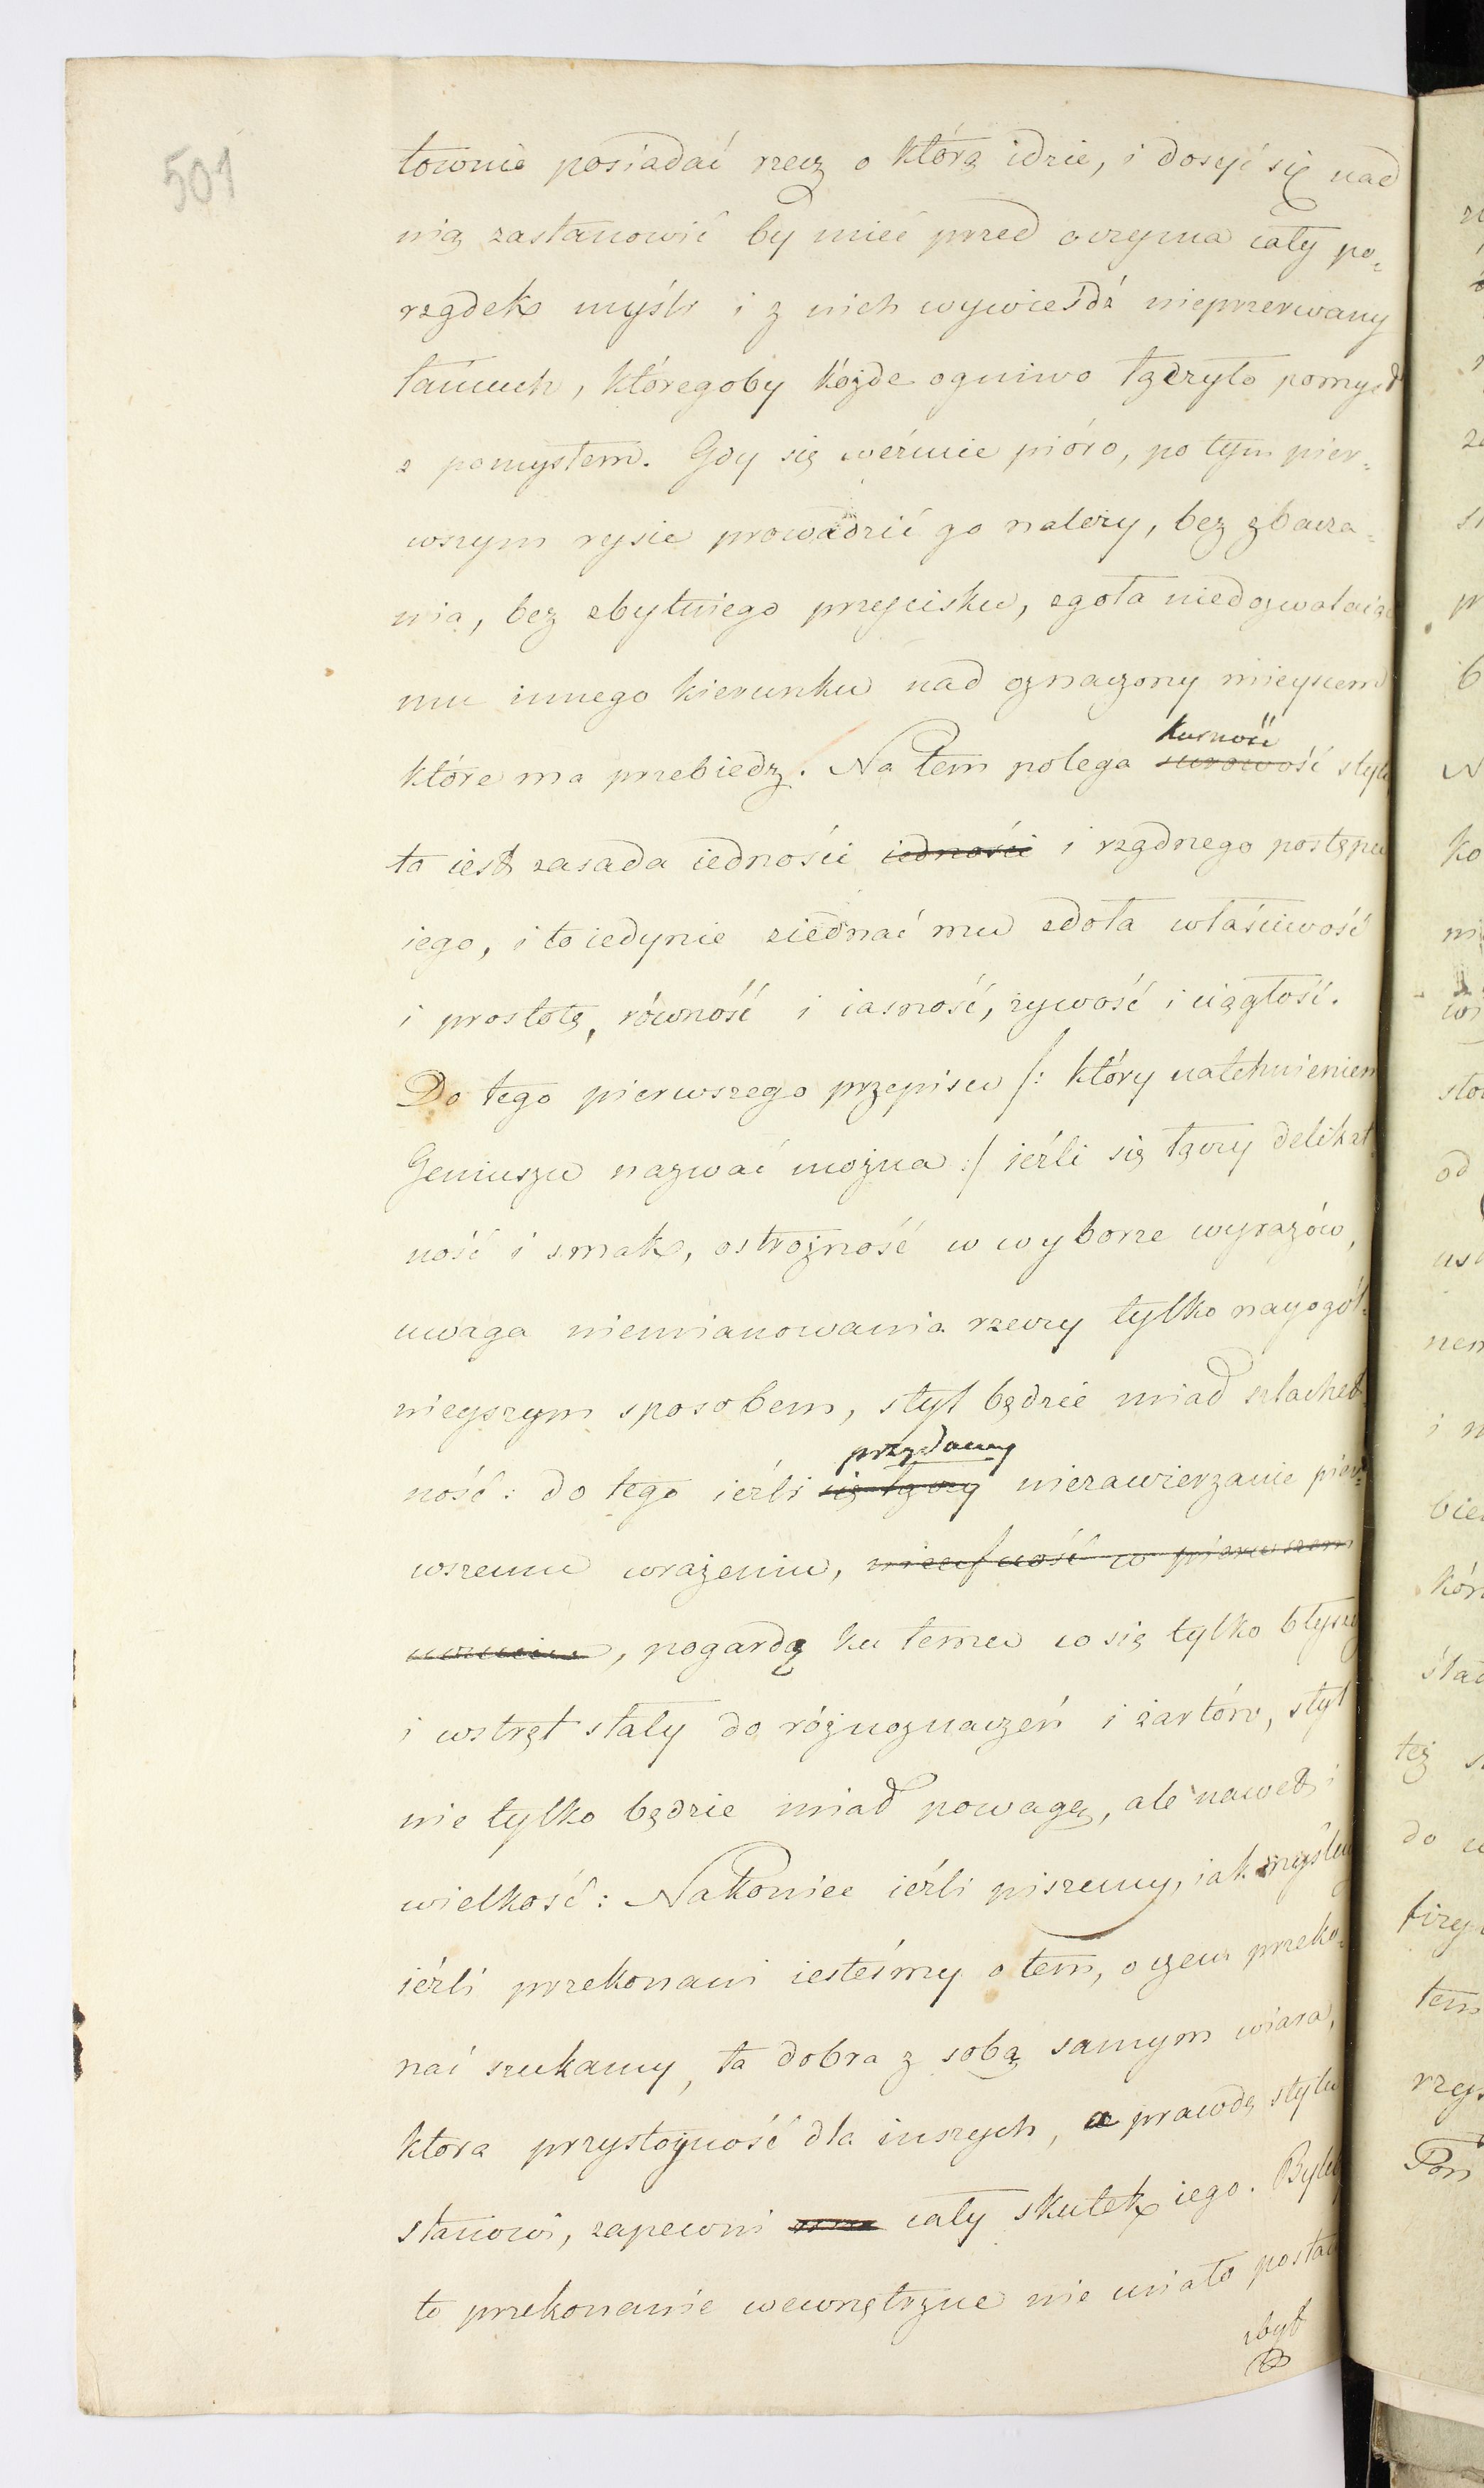 501
townie posiadać rzecz o którą idzie, i dosyć się nad
nią zastanowić by mieć przed oczyma cały po=
rządek myśli i z nich wywieśdź nieprzerwany
łańcuch, któregoby kożde ogniwo łączyło pomysł
z pomysłem. Gdy się weźmie pióro, po tym pier=
wszym rysie prowadzić go należy, bez zbacza=
nia, bez zbytniego przycisku, zgoła niedozwalaiąc
mu innego kierunku nad oznaczony mieyscem
które ma przebiedz. Na tem polega surowość styl
kusność
to iest zasada iedności iedności i rządnego postępu
iego, i to iedynie ziednać mu zdoła właściwość
i prostotę, równość i iasność, żywość i ciągłość.
Do tego pierwszego przepisu /: który natchnieniem
Geniuszu nazwać można :/ ieźli się łączy delikat=
ność i smak, ostrożność w wyborze wyrazów,
uwaga niemianowania rzeczy tylko nayogól=
nieyszym sposobem, styl będzie miał szlachet
ność: do tego ieźli się łączy nierawierzanie pier=
przydamy
wszemu wrażeniu, nieufność w pierwszem
, pogardę ku temu co się tylko błyszczy
i wstręt stały do różnoznaczeń i żartów, styl
nie tylko będzie miał powagę, ale nawet i
wielkość: Nakoniec ieźli piszemy, iak myślemy
ieźli przekonani iesteśmy o tem, o czem przeko=
nać szukamy, ta dobra z sobą samym wiara,
ktora przystoyność dla inszych, a prawdę stylu
stanowi, zapewni cały skutek iego. Byleby
to przekonanie wewnętrzne nie miało postaci
zbyt